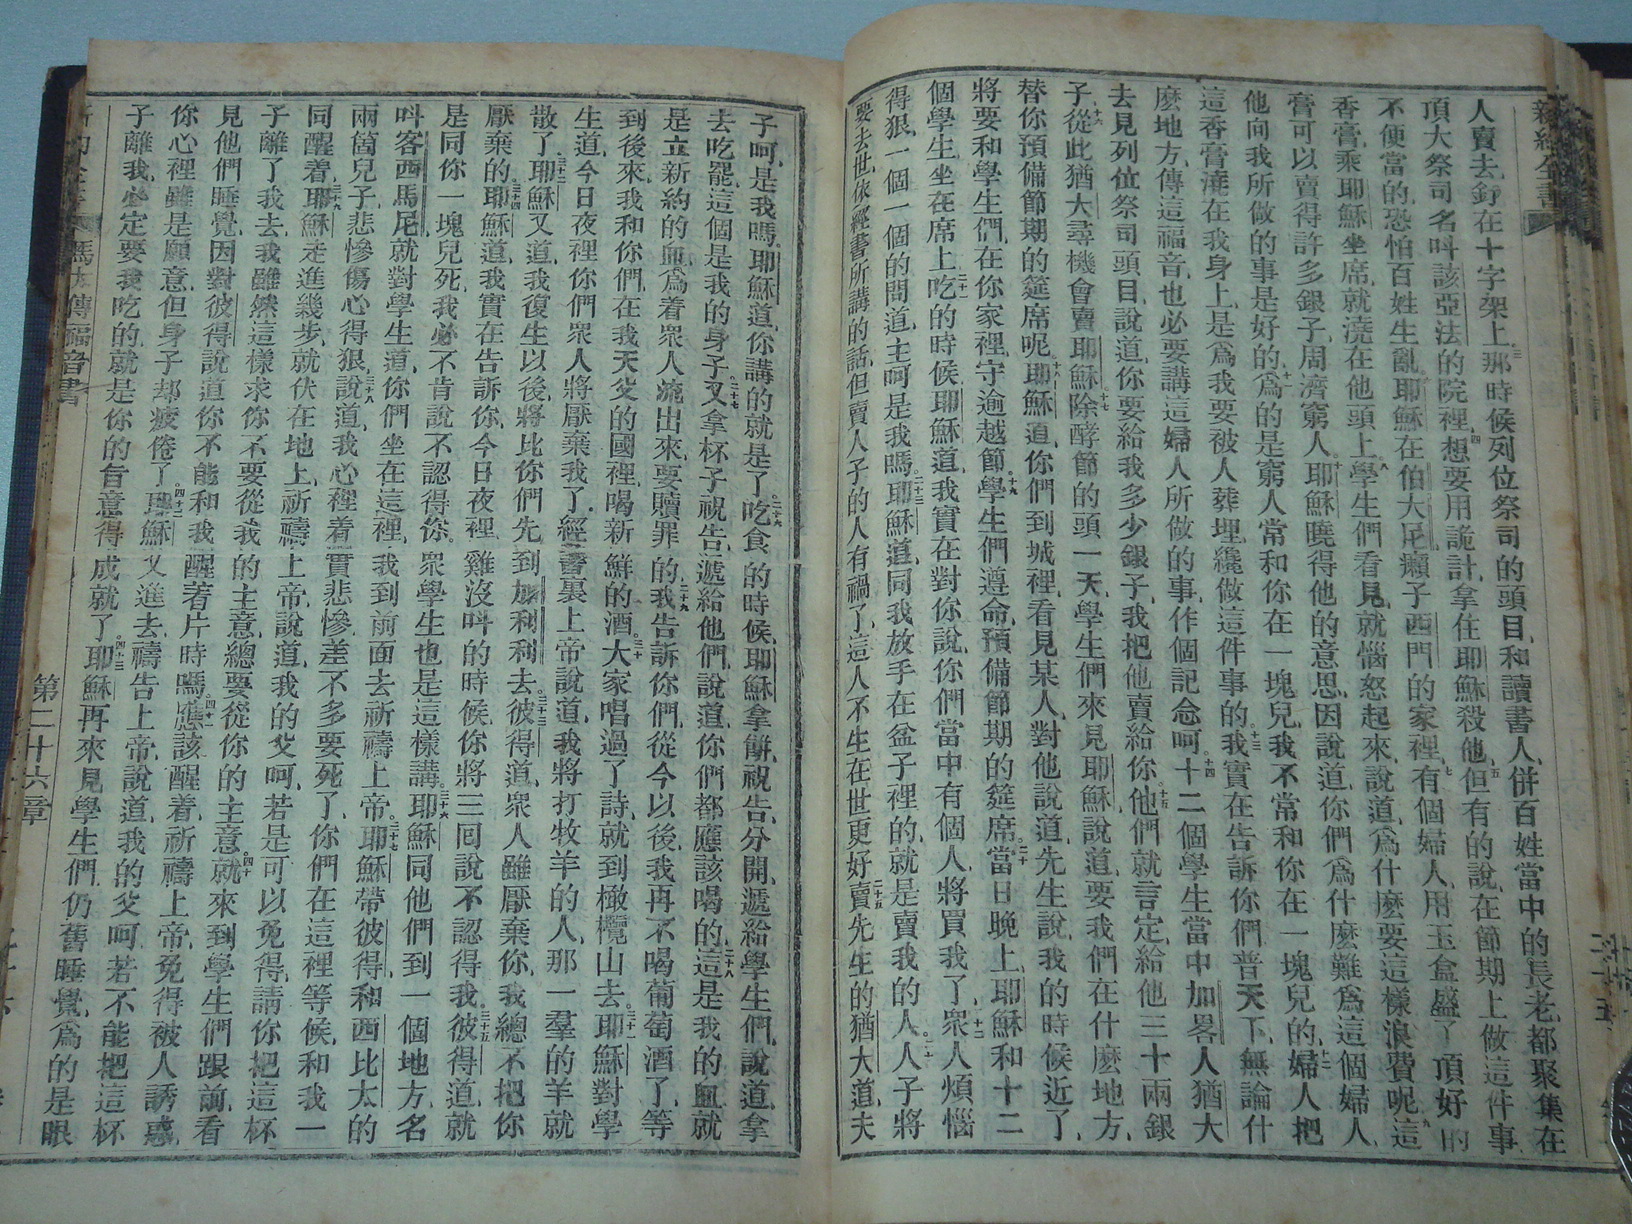 新約全書
人賣去釘在十字架上三那時候列位祭司的頭目和讀書人併百姓當中的長老都聚集在
頂大祭司名呌該亞法的院裡四想要用詭計拿住耶穌殺他五但有的說在節期上做這件事
不便當的恐怕百姓生亂六耶穌在伯大尼癩子西門的家裡七有個婦人用玉盒盛了頂好的
香膏乘耶穌坐席就澆在他頭上八學生們看見就惱怒起來說道爲什麽要這樣浪費呢九這
膏可以賣得許多銀子周濟窮人十耶穌曉得他的意思因說道你們爲什麽難爲這個婦人
他向我所做的事是好的十一爲的是窮人常和你在一塊兒我不常和你在一塊兒的十二婦人把
這香膏澆在我身上是爲我要被人葬埋纔做這件事的十三我實在告訴你們普天下無論什
麽地方傳這福音也必要講這婦人所做的事作個記念呵十四十二個學生當中加畧人猶大
去見列位祭司頭目說道你要給我多少銀子我把他賣給你十五他們就言定給他三十兩銀
子十六從此猶大尋機會賣耶穌十七除酵節的頭一天學生們來見耶穌說道要我們在什麽地方
替你預備節期的筵席呢十八耶穌道你們到城裡看見某人對他說道先生說我的時候近了
將要和學生們在你家裡守逾越節十九學生們遵命預備節期的筵席二十當日晚上耶穌和十二
個學生坐在席上二十一吃的時候耶穌道我實在對你說你們當中有個人將買我了二十二衆人煩惱
得狠一個一個的問道主呵是我嗎二十三耶穌道同我放手在盆子裡的就是賣我的人二十四人子將
要去世依經書所講的話但賣人子的人有禍了這人不生在世更好二十五賣先生的猶大道夫
子呵是我嗎耶穌道你講的就是了二十六吃食的時候耶穌拿餅祝告分開遞給學生們說道拿
去吃罷這個是我的身子二十七又拿杯子祝告遞給他們說道你們都應該喝的二十八這是我的血就
是立新約的血爲着衆人流出來要贖罪的二十九我告訴你們從今以後我再不喝葡萄酒了等
到後來我和你們在我天父的國裡喝新鮮的酒三十大家唱過了詩就到橄欖山去三十一耶穌對學
生道今日夜裡你們衆人將厭棄我了經書裏上帝說道我將打牧羊的人那一羣的羊就
散了三十二耶穌又道我復生以後將比你們先到加利利去三十三彼得道衆人雖厭棄你我總不把你
厭棄的三十四耶穌道我實在告訴你今日夜裡雞沒呌的時候你將三囘說不認得我三十五彼得道就
是同你一塊兒死我必不肯說不認得你衆學生也是這樣講三十六耶穌同他們到一個地方名
呌客西馬尼就對學生道你們坐在這裡我到前面去祈禱上帝三十七耶穌帶彼得和西比太的
兩箇兒子悲慘傷心得狠三十八說道我心裡着實悲慘差不多要死了你們在這裡等候和我一
同醒着三十九耶穌走進幾步就伏在地上祈禱上帝說道我的父呵若是可以免得請你把這杯
子離了我去我雖然這樣求你不要從我的主意總要從你的主意四十就來到學生們跟前看
見他們睡覺因對彼得說道你不能和我醒着片時嗎四十一應該醒着祈禱上帝免得被人誘惑
你心裡雖是願意但身子却疲倦了四十二耶穌又進去禱告上帝說道我的父呵若不能把這杯
子離我必定要我吃的就是你的旨意得成就了四十三耶穌再來見學生們仍舊睡覺爲的是眼
馬太傳福音書 第二十六章